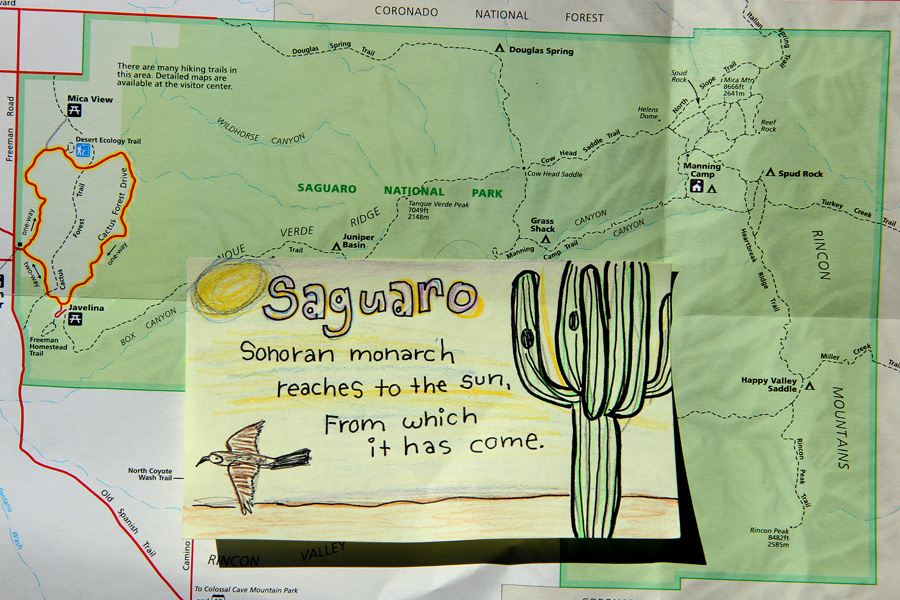 vard
CORONADO NATIONAL FOREST
Douglas Spring Trail
Douglas Spring
Italian Spring Trail
There are many hiking trails in
this area. Detailed maps are
available at the visitor center.
Spud
Rock
North Slope Trail
Mica Mtn
8666ft
2641m
Mica View
Freeman Road
Helens
Dome
Reef
Rock
WILDHORSE CANYON
Desert Ecology Trail
Cow Head Saddle Trail
Cow Head Saddle
Manning
Camp
Spud Rock
SAGUARO NATIONAL PARK
Tanque Verde Peak
7049ft
2148m
Turkey Creek Trail
one-way
Cactus Forest Trail
Cactus Forest Drive
one-way
two-way
Grass
Shack
CANYON
CANYON
Manning Camp Trail
VERDE RIDGE
Trail
Juniper
Basin
RINCON
MOUNTAINS
Heartbreak Ridge Trail
Javelina
BOX CANYON
Freeman
Homestead
Trail
Saguaro
Sonoran monarch
reaches to the sun,
From which
it has come.
Miller Creek
Trai
Happy Valley
Saddle
Rincon Peak Trail
North Coyote
Wash Trail
Old Spanish Trail
Pantano Wash
Camino
RINCON VALLEY
Rincon Peak
8482ft
2585m
To Colossal Cave Mountain Park
and